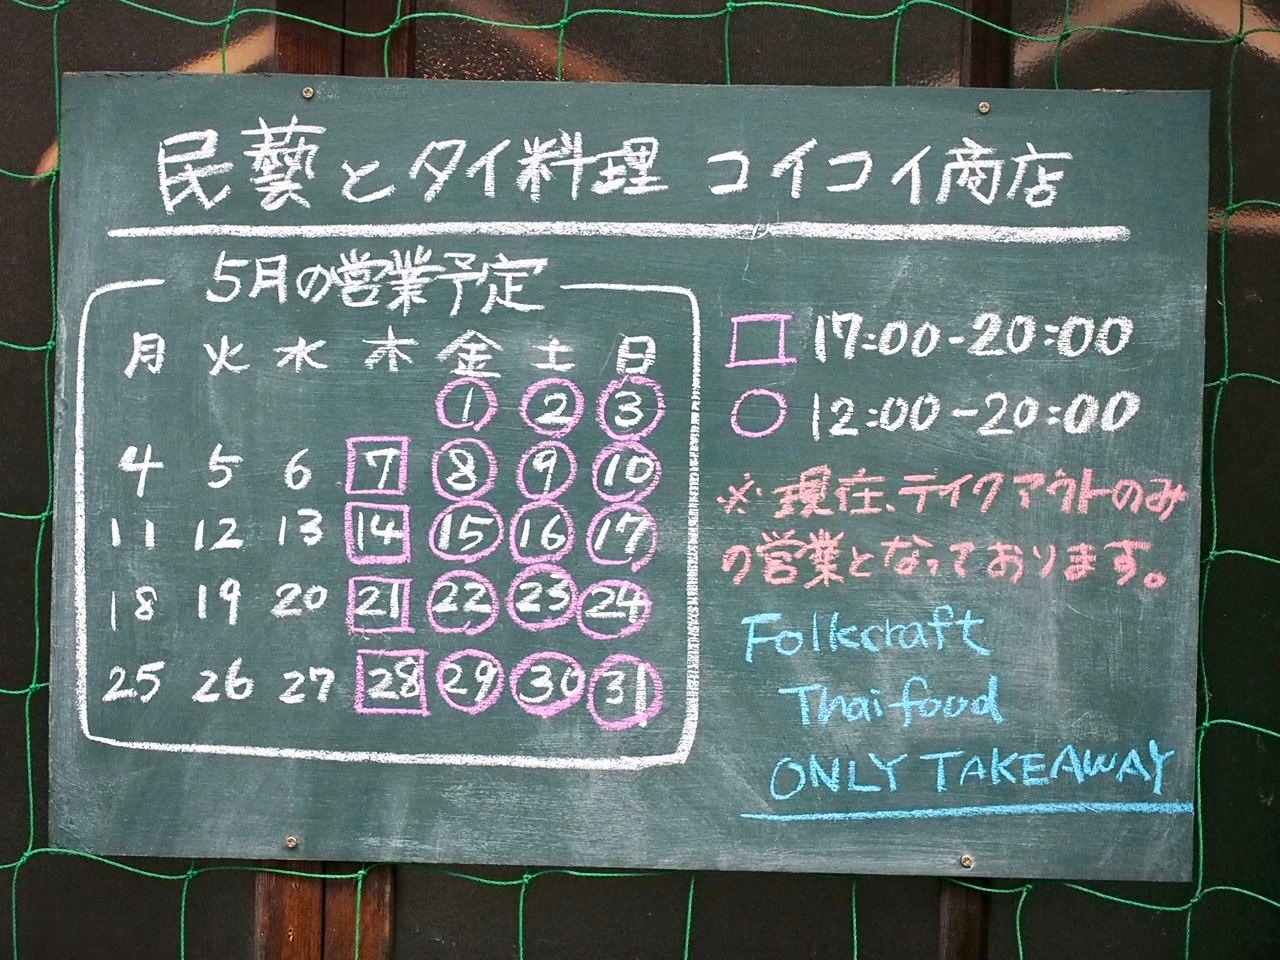 民藝とタイ料理 コイコイ商店
5月の営業予定
月 火 水 木 金 土 日
1 2 3
4 5 6 7 8 9 10
11 12 13 14 15 16 17
18 19 20 21 22 23 24
25 26 27 28 29 30 31
□ 17:00-20:00
○ 12:00-20:00
※現在、テイクアウトのみ
の営業となっております。
Folkcraft
Thai food
ONLY TAKEAWAY